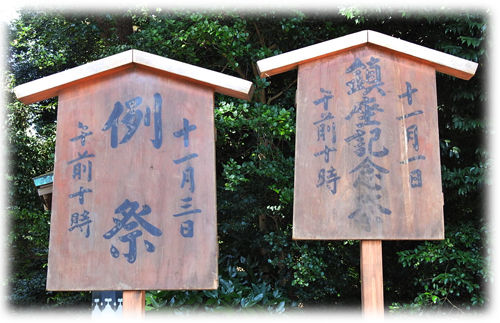 十一月三日
例祭
午前十時
十一月一日
鎮座記念祭
午前十時